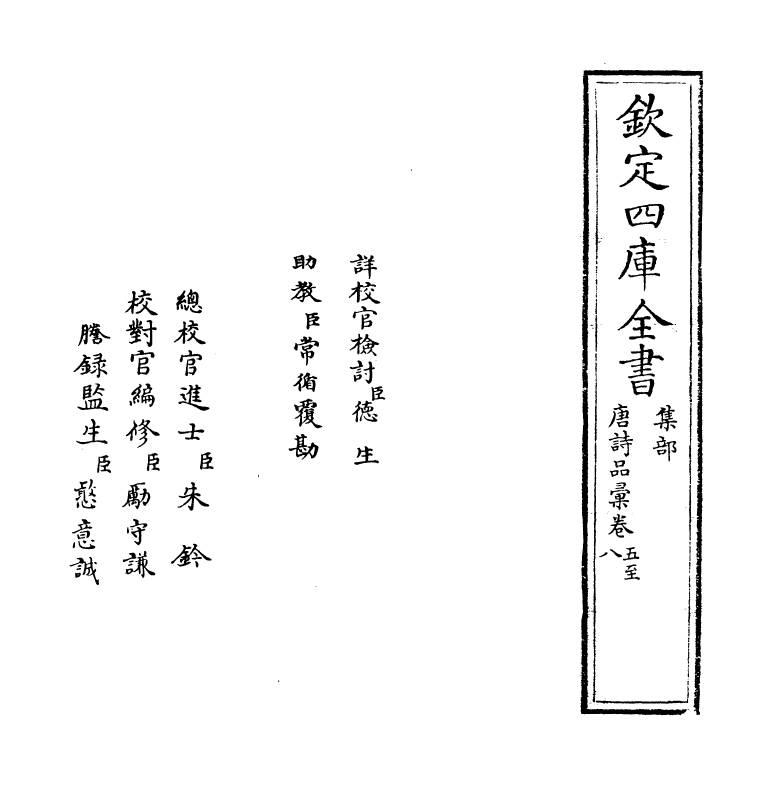 欽定四庫全書
集部
唐詩品彙卷五至八
詳校官檢討臣德生
助教臣常循覆勘
總校官進士臣朱鈐
校對官編修臣勵守謙
謄録監生臣慤意誠